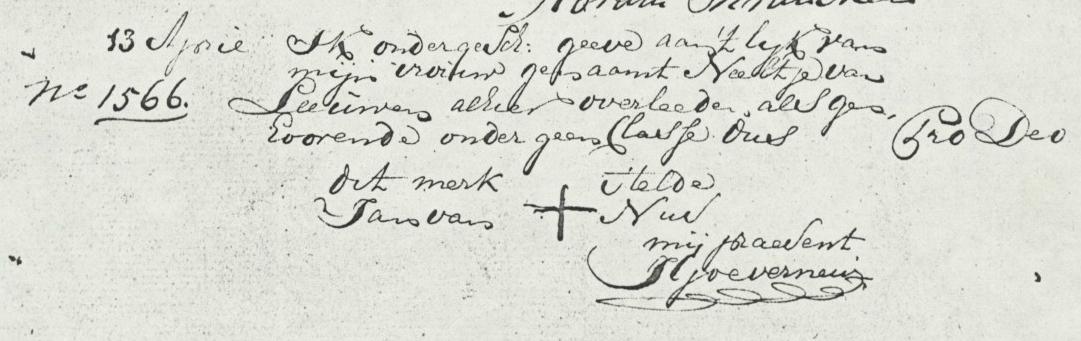 13 April Ik ondergesch: geeve aan 't lyk van
mijn vrouw genaamt Neeltje van
No 1566. Leeuwen alhier overleeden als ge,
hoorende onder geen Classe dus Pro Deo
dit merk + stelde
Jan van Nus
mij praesent